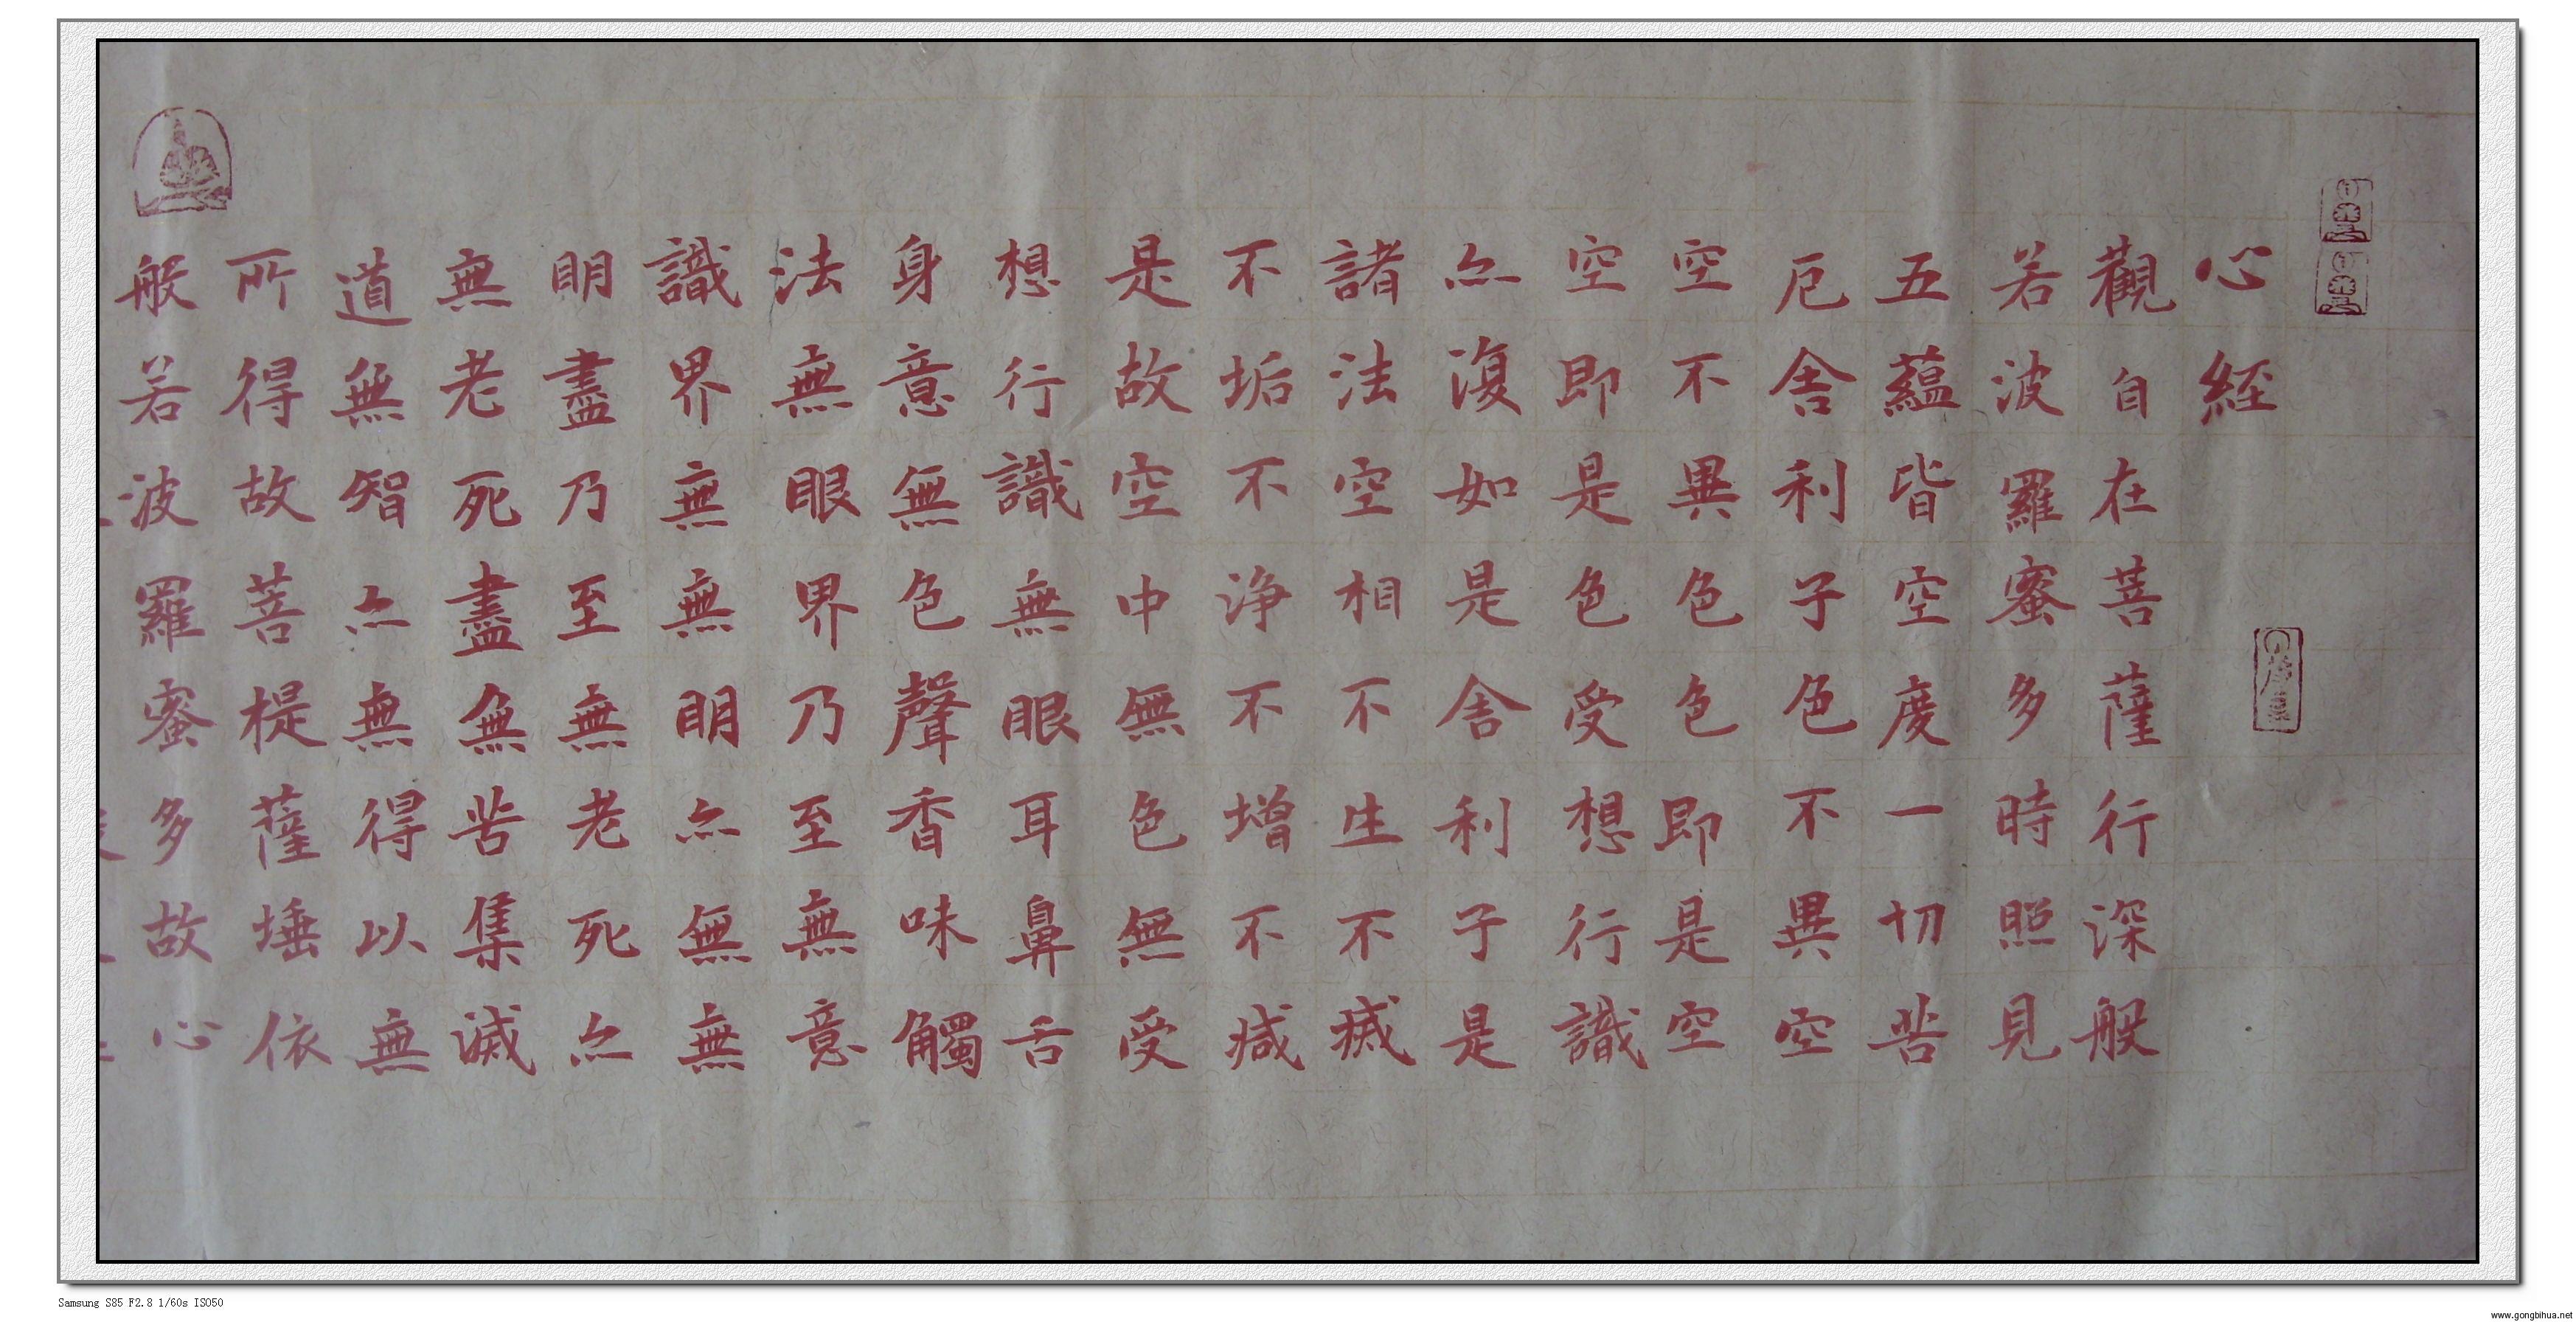 心経
觀自在菩薩行深般
若波羅蜜多時照見
五蘊皆空度一切苦
厄舍利子色不異空
空不異色色即是空
空即是色受想行識
亦復如是舍利子是
諸法空相不生不滅
不垢不浄不增不減
是故空中無色無受
想行識無眼耳鼻舌
身意無色聲香味觸
法無眼界乃至無意
識界無無明亦無無
明盡乃至無老死亦
無老死盡無苦集滅
道無智亦無得以無
所得故菩提薩埵依
般若波羅蜜多故心
Samsung S85 F2.8 1/60s ISO50
www.gongbihua.net